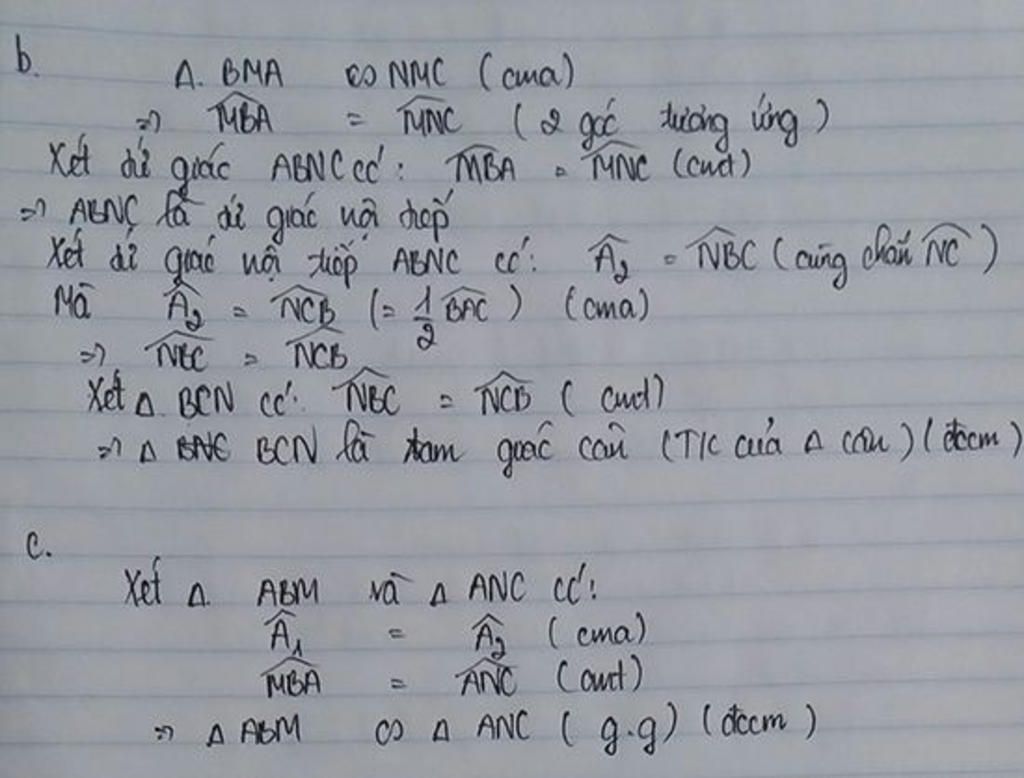 b.
Δ. BMA ∽ NMC (cma)
=> \widehat{MBA} = \widehat{MNC} (2 góc tương ứng)
Xét tứ giác ABNC có: \widehat{MBA} = \widehat{MNC} (cmt)
=> ABNC là tứ giác nội tiếp
Xét tứ giác nội tiếp ABNC có: \widehat{A}_2 = \widehat{NBC} (cùng chắn \widehat{NC})
Mà \widehat{A}_2 = \widehat{NCB} (= \frac{1}{2} \widehat{BAC}) (cma)
=> \widehat{NBC} = \widehat{NCB}
Xét Δ BCN có: \widehat{NBC} = \widehat{NCB} (cmt)
=> Δ BCN là tam giác cân (T/C của Δ cân) (đccm)
c.
Xét Δ ABM và Δ ANC có:
\widehat{A}_1 = \widehat{A}_2 (cma)
\widehat{MBA} = \widehat{ANC} (cmt)
=> Δ ABM ∽ Δ ANC (g.g) (đccm)